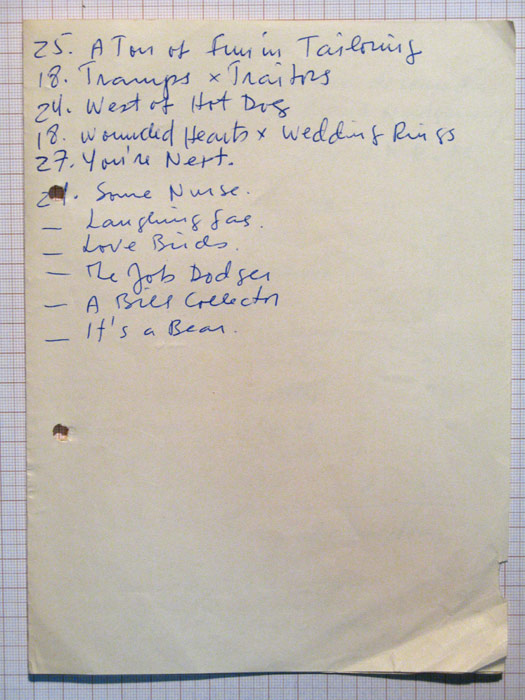 25. A Ton of Fun in Tailoring
18. Tramps x Traitors
24. West of Hot Dog
18. Wounded Hearts x Wedding Rings
27. You're Next.
24. Some Nurse.
— Laughing Gas.
— Love Birds.
— The Job Dodger
— A Bill Collector
— It's a Bear.